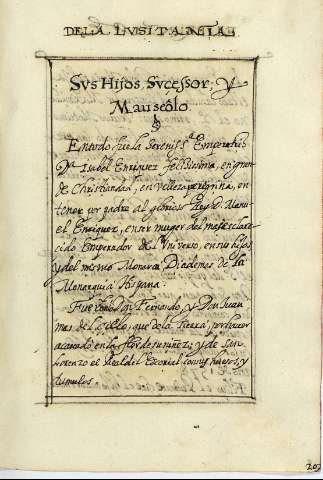 DE LA LUSITANIA
SVs Hijos, Svcessor, y
Mausêolo
§
En todo fue la Sereniss.ª Emperatris
D.ª Isabel Enriquez felicissima, en gran
de Christiandad, en velleza peregrina, en
tener por padre al glorioso Rey D. Manu
el Enriquez, en ser muger del mas escla
cido Emperador del Vniverso, en sus hijos
y del mismo Monarca Diademas de la
Monarquia Hispana.
Fueron Don Fernando, y Don Juan
mas del Cielo, que de la tierra, por haver
acavado en la flor de su niñez; y de San
Lorenzo el Real del Escorial con sus huesos, y
tumulos.
202